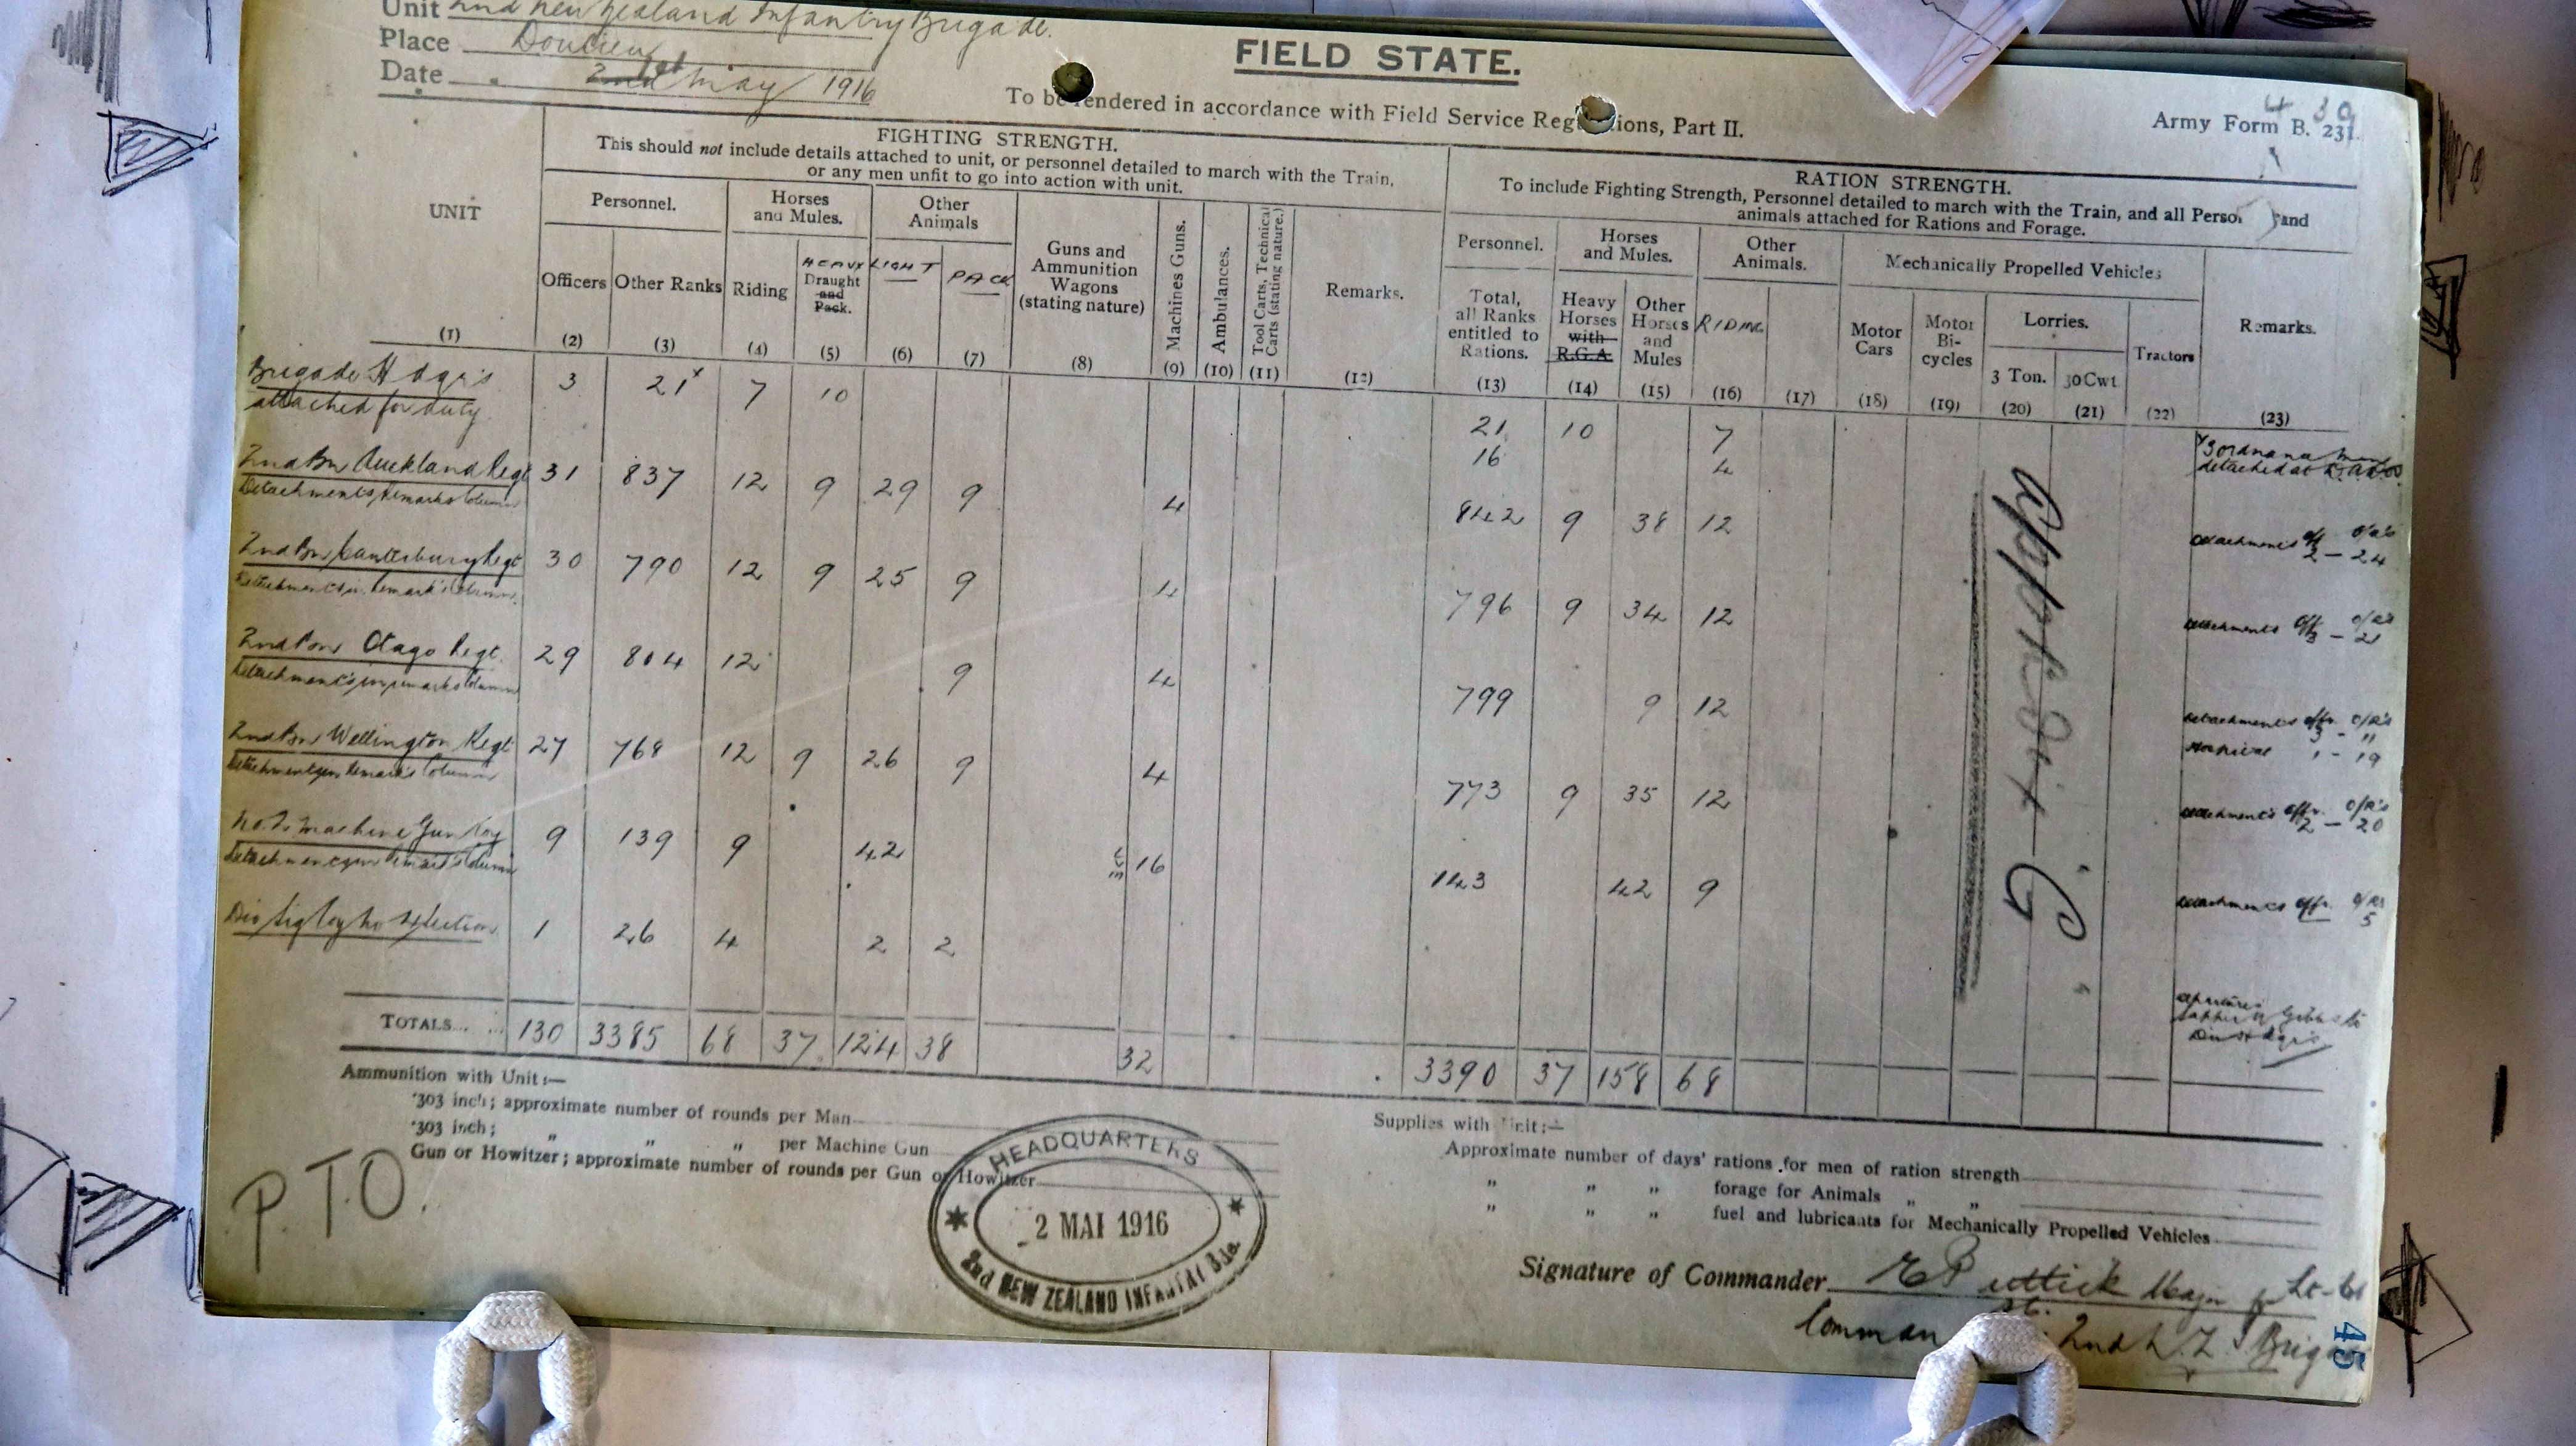 Unit 2nd New Zealand Infantry Brigade.
Place Doulieu
Date 2nd 1st May 1916
FIELD STATE.
To be rendered in accordance with Field Service Regulations, Part II.
Army Form B. 231.
4 39
FIGHTING STRENGTH.
This should not include details attached to unit, or personnel detailed to march with the Train,
or any men unfit to go into action with unit.
RATION STRENGTH.
To include Fighting Strength, Personnel detailed to march with the Train, and all and
animals attached for Rations and Forage.
UNIT
Personnel.
Horses and Mules.
Other Animals
Guns and Ammunition Wagons (stating nature)
Machines Guns.
Ambulances.
Tool Carts, Technical Carts (stating nature.)
Remarks.
Personnel.
Horses and Mules.
Other Animals.
Mechanically Propelled Vehicles
Remarks.
Officers Other Ranks Riding HEAVY Draught and Pack. LIGHT PACK
Total, all Ranks entitled to Rations.
Heavy Horses with R.G.A.
Other Horses and Mules
RIDING
Motor Cars
Motor Bi-cycles
Lorries.
3 Ton. 30 Cwt.
Tractors
(1) (2) (3) (4) (5) (6) (7) (8) (9) (10) (11) (12) (13) (14) (15) (16) (17) (18) (19) (20) (21) (22) (23)
Brigade Hdqrs 3 21x 7 10 21 10 7
attached for duty 16 4
detached at
2nd Bn Auckland Regt 31 837 12 9 29 9 4 842 9 38 12
Detachments Remarks Column
detachments off o/rs
2 – 24
2nd Bn Canterbury Regt 30 790 12 9 25 9 4 796 9 34 12
Detachments in Remarks Column
detachments off o/rs
3 – 21
2nd Bn Otago Regt. 29 804 12 9 4 799 9 12
Detachments in remarks Column
detachments offr. o/R's
3 – 11
Hospital 1 – 19
2nd Bn Wellington Regt 27 768 12 9 26 9 4 773 9 35 12
Detachments in Remarks Column
detachments offr. o/R's
2 – 20
No. 2 Machine Gun Coy 9 139 9 42 16 143 42 9
Detachments in Remarks Column
detachments offr. o/Rs
5
Div Sig Coy No 4 Section 1 26 4 2 2
Div Hdqrs
Appendix "G"
TOTALS... ... 130 3385 68 37 124 38 32 3390 37 158 68
Ammunition with Unit:—
·303 inch; approximate number of rounds per Man
·303 inch; " " " per Machine Gun
Gun or Howitzer; approximate number of rounds per Gun or Howitzer
Supplies with Unit:—
Approximate number of days' rations for men of ration strength
" " " forage for Animals " "
" " " fuel and lubricants for Mechanically Propelled Vehicles
P.T.O.
HEADQUARTERS
2 MAI 1916
2nd NEW ZEALAND INFANTRY Bde.
Signature of Commander E Puttick Major for Lt-Col
2nd N.Z. I Brig
45